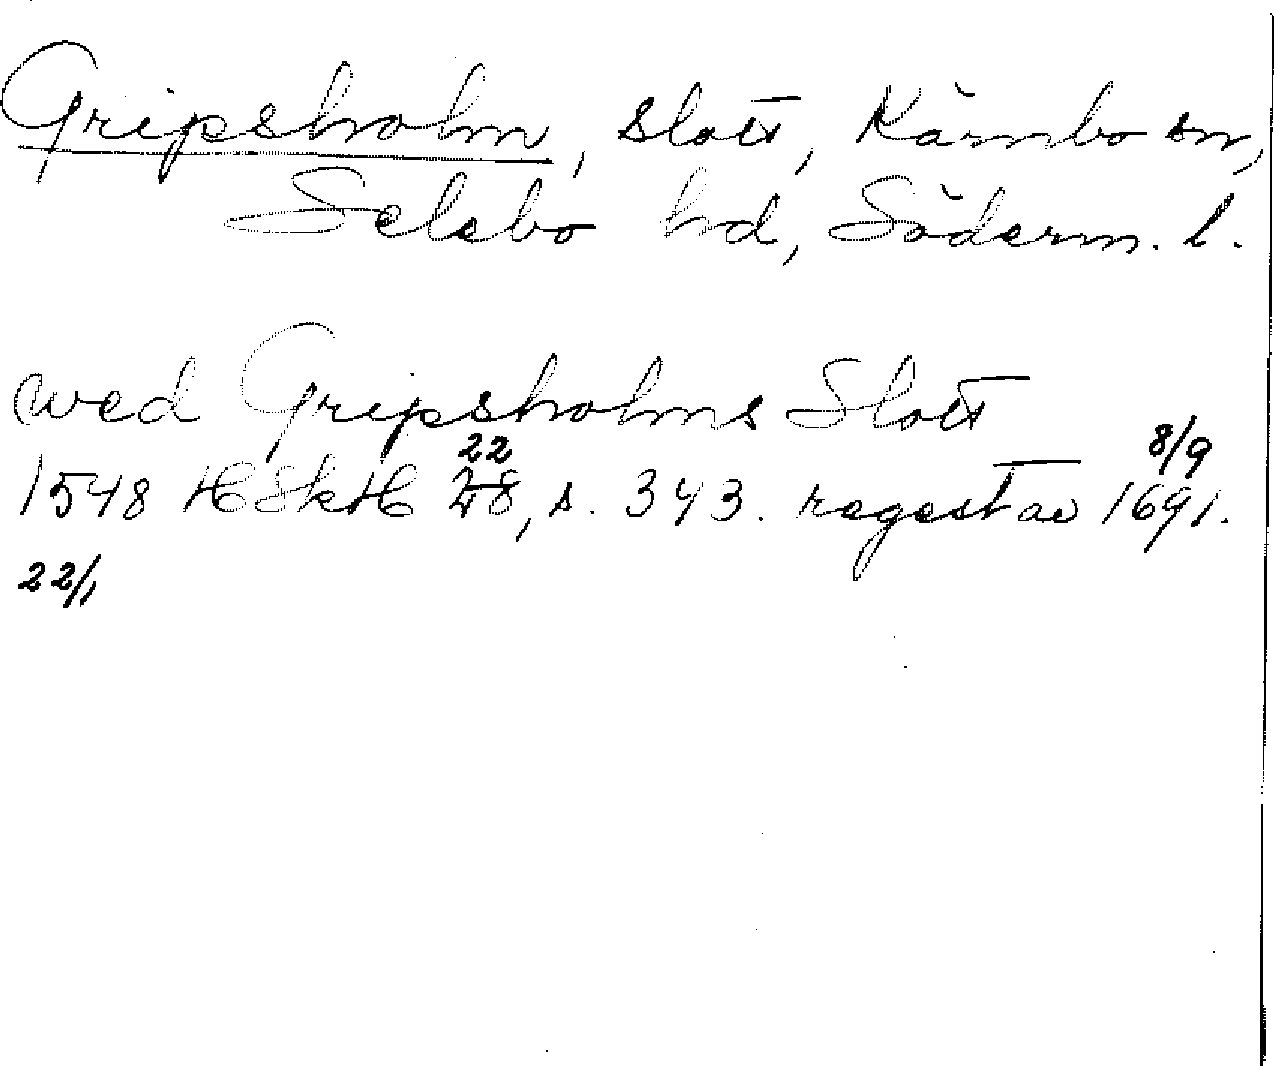 Gripsholm, slott, Kärnbo sn,
Selebo hd, Söderm. l.
wed Gripsholms Slott
1548 HSkH 22, s. 343. regest av 8/9 1691.
22/1